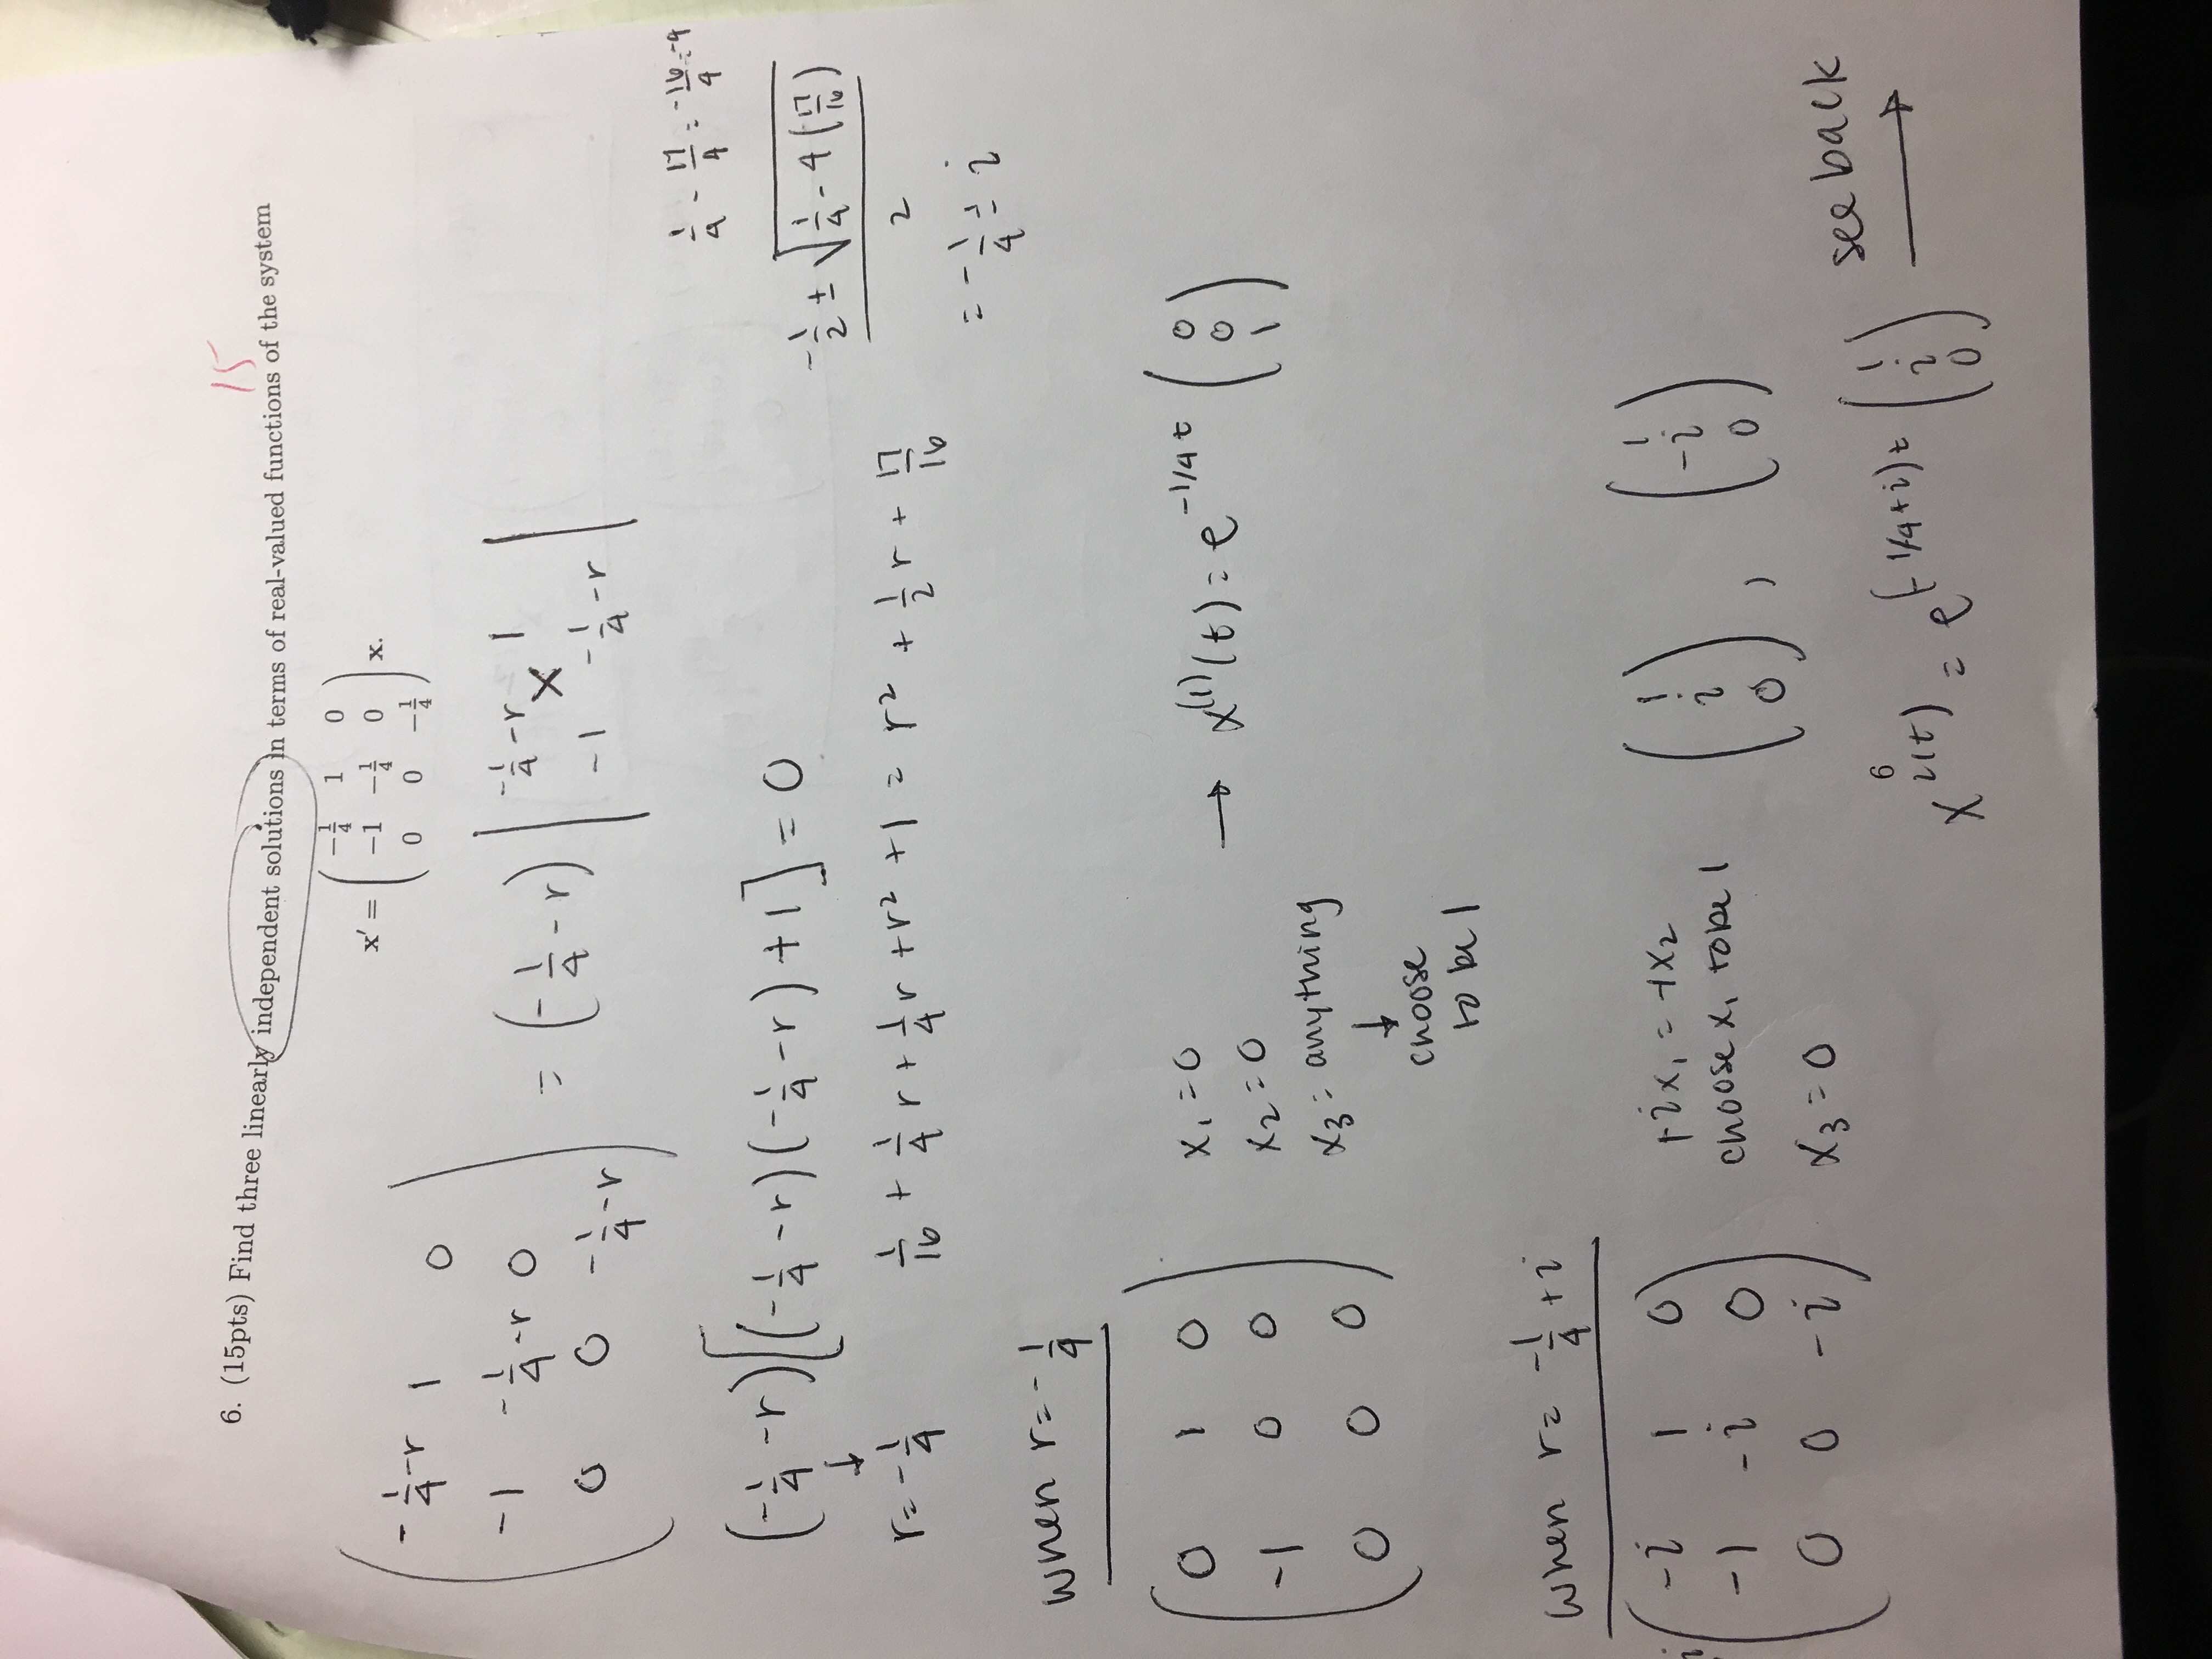 15
6. (15pts) Find three linearly independent solutions in terms of real-valued functions of the system
x′ = ( -1/4 1 0
-1 -1/4 0
0 0 -1/4 ) x.
( -1/4-r 1 0
-1 -1/4-r 0
0 0 -1/4-r ) = (-1/4 - r) | -1/4-r 1
-1 -1/4-r |
(-1/4 - r)[(-1/4 - r)(-1/4 - r) + 1] = 0
↓
r = -1/4
1/16 + 1/4 r + 1/4 r + r² + 1 = r² + 1/2 r + 17/16
1/4 - 17/4 = -16/4 = -4
-1/2 ± √(1/4 - 4(17/16))
2
= -1/4 ± i
when r = -1/4
( 0 1 0
-1 0 0
0 0 0 )
x₁ = 0
x₂ = 0
x₃ = anything
↓
choose
to be 1
→ x⁽¹⁾(t) = e^{-1/4 t} ( 0
0
1 )
when r = -1/4 + i
( -i 1 0
-1 -i 0
0 0 -i )
+ix₁ = +x₂
choose x₁ to be 1
x₃ = 0
( 1
i
0 ) , ( 1
-i
0 )
6
x^{2(t)} = e^{(-1/4+i)t} ( 1
i
0 )
see back
→